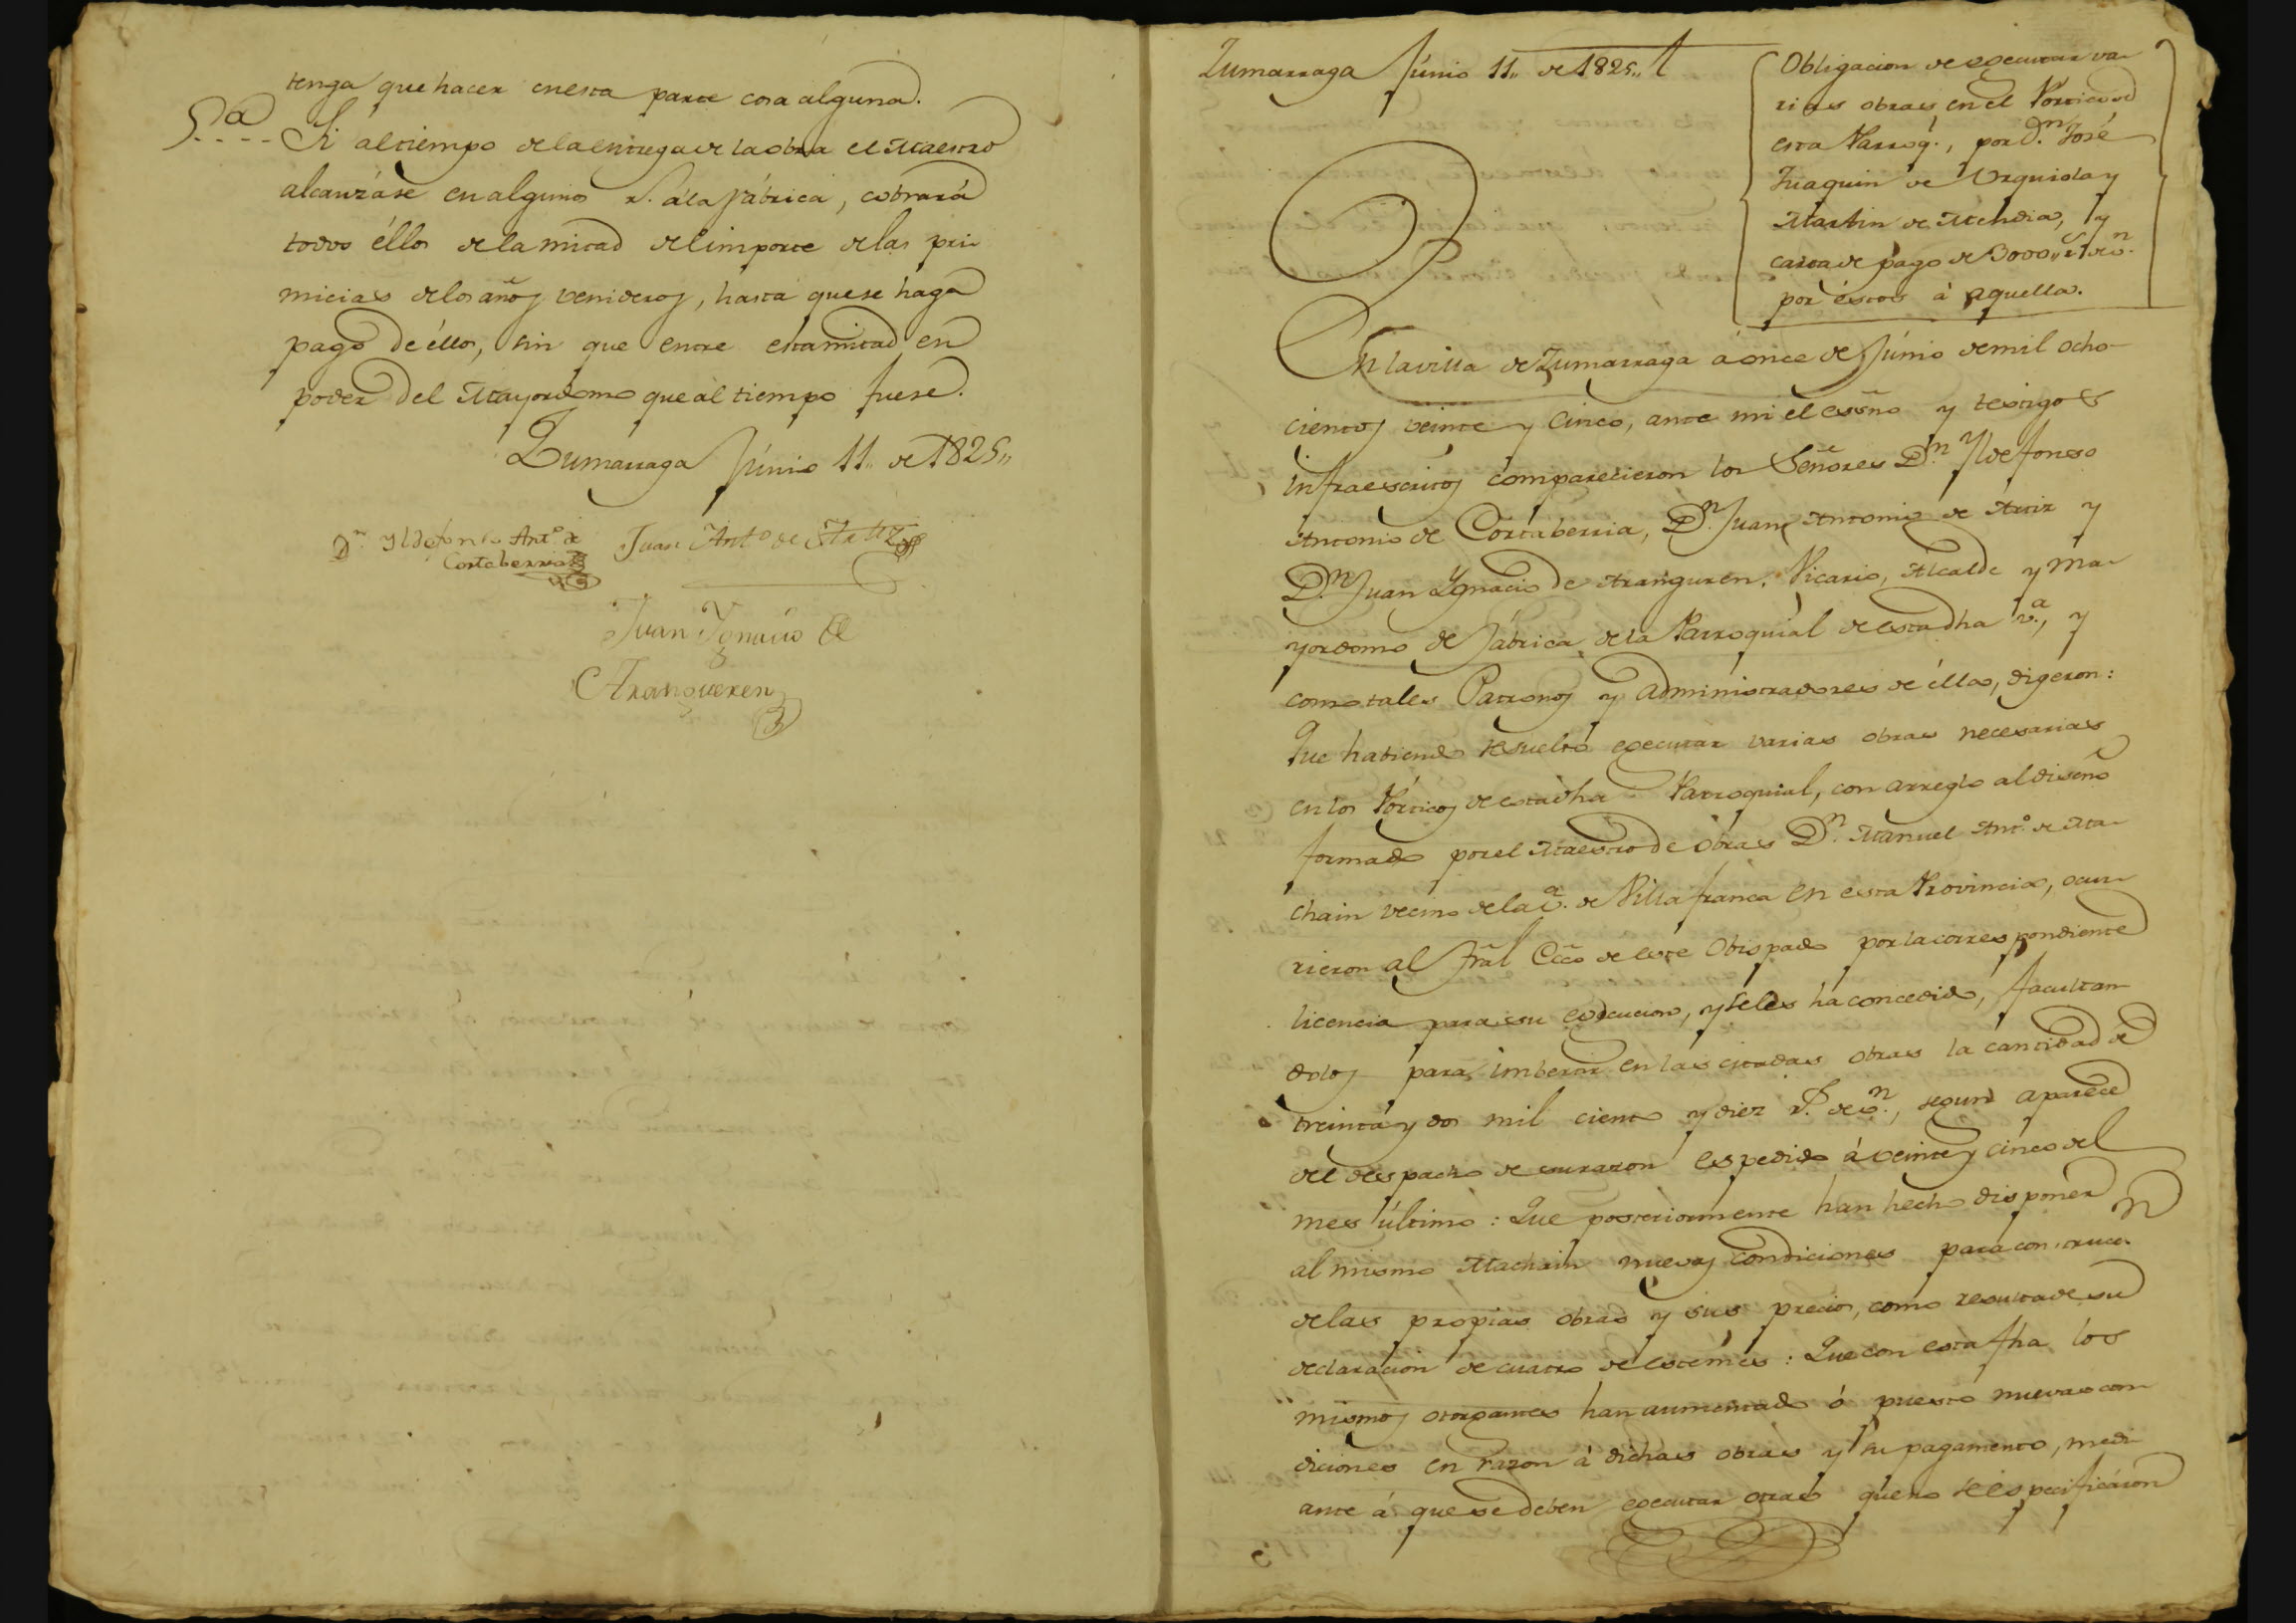 tenga que hacer en esta parte cosa alguna.
5.ª Si al tiempo de la entrega de la obra el Maestro
alcanzáse en algunos r.s á la fábrica, cobrará
todos éllos de la mitad del importe de las pri-
micias de los años venideros, hasta que se haga
pago de éllos, sin que entre esta mitad en
poder del Mayordomo que al tiempo fuese.
Zumarraga Júnio 11,, de 1825,,
D.n Yldefonso Ant.o de
Cortaberria
Juan Ant.o de Artiz
Juan Ygnacio de
Aranguren
Zumarraga Júnio 11,, de 1825,,
Obligacion de egecutar va-
rias obras en el Pórtico de
esta Parroq.l, por D.n José
Juaquin de Urquiola y
Martin de Mendia, y
carta de pago de 3000,, r.s de v.n
por éstos á aquella.
En la villa de Zumarraga á once de Júnio de mil ocho-
cientos veinte y cinco, ante mi el essño y testigos
infraescritos comparecieron los Señores D.n Yldefonso
Antonio de Cortaberria, D.n Juan Antonio de Artiz y
D.n Juan Ygnacio de Aranguren, Vicario, Alcalde y Ma-
yordomo de fábrica de la Parroquial de esta dha v.a, y
como tales Patronos y Administradores de élla, digeron:
Que habiendo resuelto egecutar varias obras necesarias
en los Pórticos de esta dha Parroquial, con arreglo al diseño
formado por el Maestro de obras D.n Manuel Ant.o de Ma-
chain vecino de la v.a de Villafranca en esta Provincia, ocur-
rieron al Trãl Ecc̃o de este Obispado por la correspondiente
licencia para su egecucion, y se les ha concedido, facultan-
dolos para imbertir en las citadas obras la cantidad de
treinta y dos mil ciento y diez r.s de v.n, segun aparece
del despacho de su razon espedido á veinte y cinco del
mes último: Que posteriormente han hecho disponer
al mismo Machain nuevas condiciones para construcc.n
de las propias obras y sus precios, como resulta de su
declaracion de cuatro de este mes: Que con esta fha los
mismos otorgantes han aumentado ó puesto nuevas con-
diciones en razon á dichas obras y su pagamento, medi-
ante á que se deben egecutar otras que no se especificáron